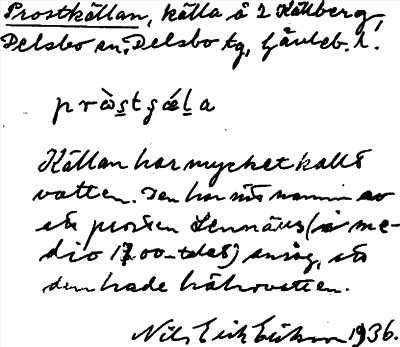 Prostkällan, källa å 2 Källberg,
Delsbo sn, Delsbo tg, Gävleb. l.
pròstgǽla
Källan har mycket kallt
vatten. Den har fått namn av
att prosten Lennæus (i me-
dio 1700-talet) ansåg, att
den hade hälsovatten.
Nils Erik Eriksson 1936.